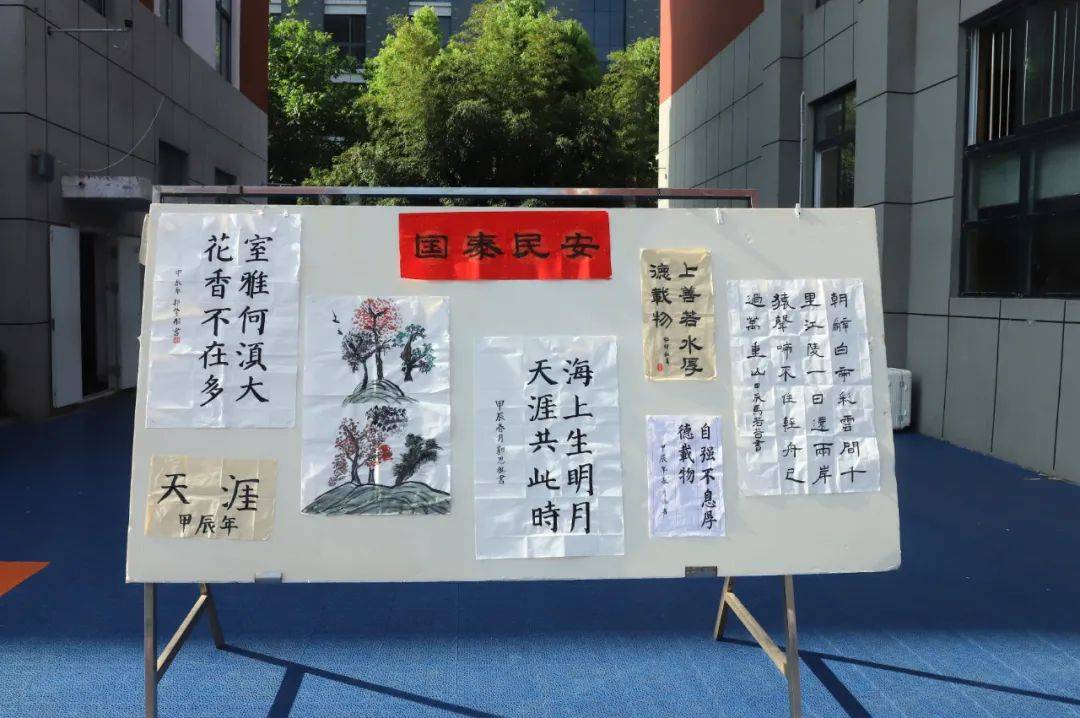 室雅何湏大
花香不在多
甲辰年
国泰民安
天涯
甲辰年
海上生明月
天涯共此時
甲辰春月
上善若水厚
德載物
自强不息厚
德載物
甲辰年
朝辭白帝彩雲間十
里江陵一日還兩岸
猿聲啼不住輕舟已
過萬重山